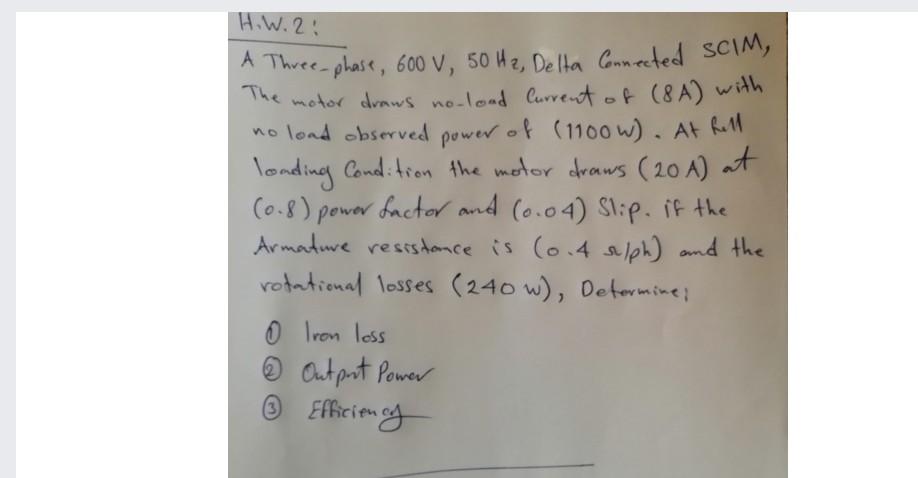 H.W.2:
A Three-phase, 600 V, 50 Hz, Delta Connected SCIM,
The motor draws no-load Current of (8A) with
no load observed power of (1100 W). At full
loading Condition the motor draws (20 A) at
(0.8) power factor and (0.04) Slip. if the
Armature resistance is (0.4 Ω/ph) and the
rotational losses (240 W), Determine;
① Iron loss
② Output Power
③ Efficiency